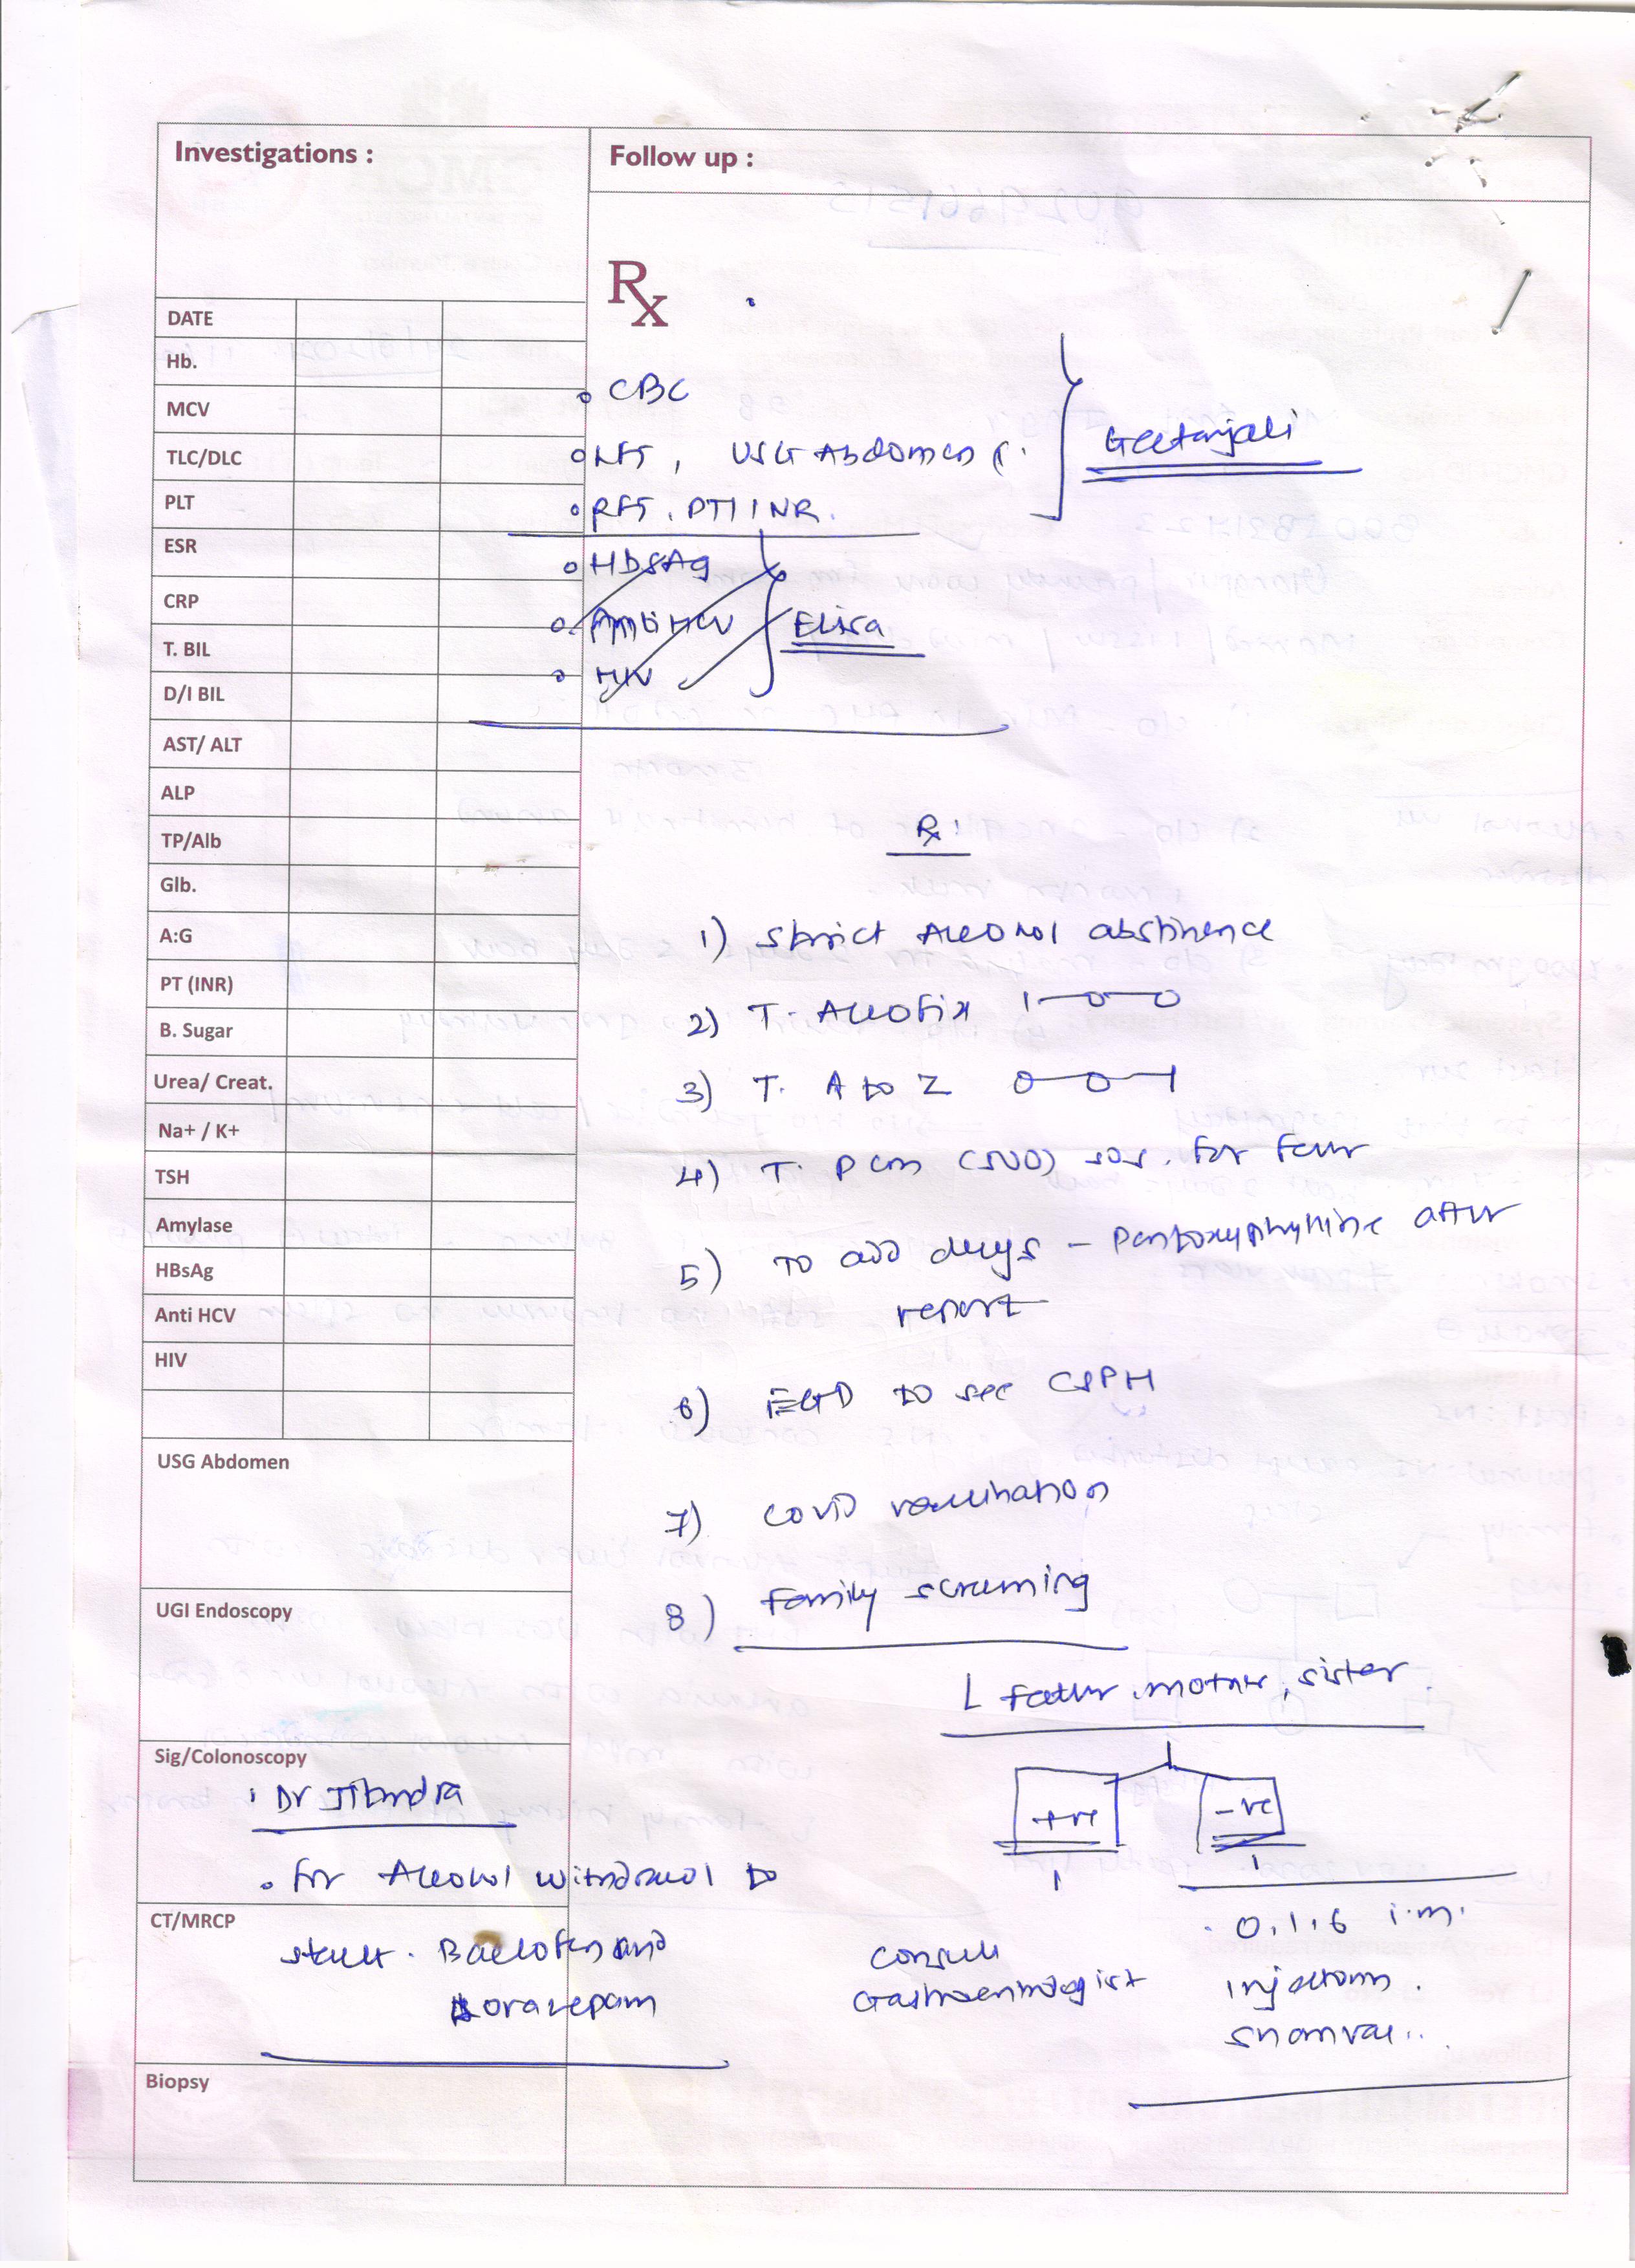 Investigations :
Follow up :
Rx
DATE
Hb.
MCV
TLC/DLC
PLT
ESR
CRP
T. BIL
D/I BIL
AST/ ALT
ALP
TP/Alb
Glb.
A:G
PT (INR)
B. Sugar
Urea/ Creat.
Na+ / K+
TSH
Amylase
HBsAg
Anti HCV
HIV
USG Abdomen
UGI Endoscopy
Sig/Colonoscopy
Dr Jitendra
for Alcohol withdrawl to
CT/MRCP
start. Baclofen and
Lorazepam
Biopsy
CBC
LFT, USG Abdomen
RFT, PT/INR.
Geetanjali
HbsAg
Anti HCV
HIV
Elisa
Rx
1) Strict Alcohol abstinence
2) T. Alcofix 1-0-0
3) T. A to Z 0-0-1
4) T. Pcm (500) sos. for fever
5) To add drugs - Pentoxyphylline after
report
6) EGD to see CSPH
7) Covid vaccination
8) Family screening
L father, mother, sister
+ve
-ve
Consult
Gastroenterologist
0,1,6 i.m.
injections.